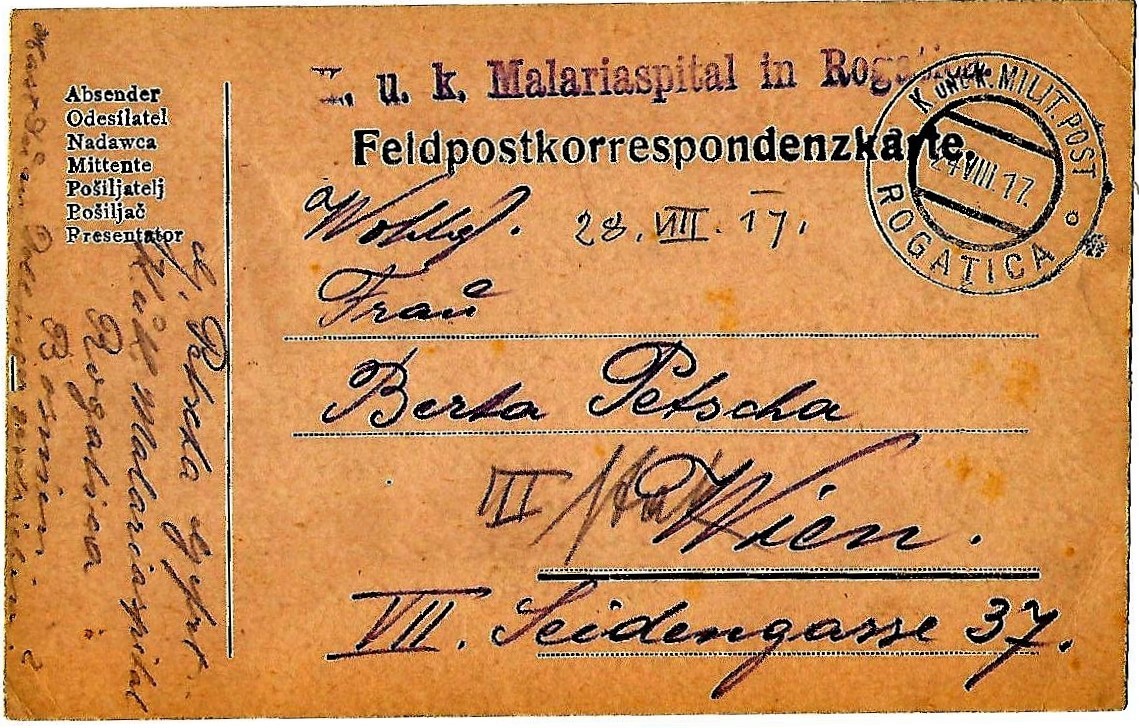 u. k. Malariaspital in
K. UND K. MILIT. POST
24 VIII. 17.
ROGATICA
Feldpostkorrespondenzkarte.
Absender
Odesílatel
Nadawca
Mittente
Pošiljatelj
Pošiljač
Presentator
28. VIII. 17.
Frau
Berta Petscha
III
Wien.
VII. Seidengasse 37.
K u K Malariaspital
Rogatica
Bosnien